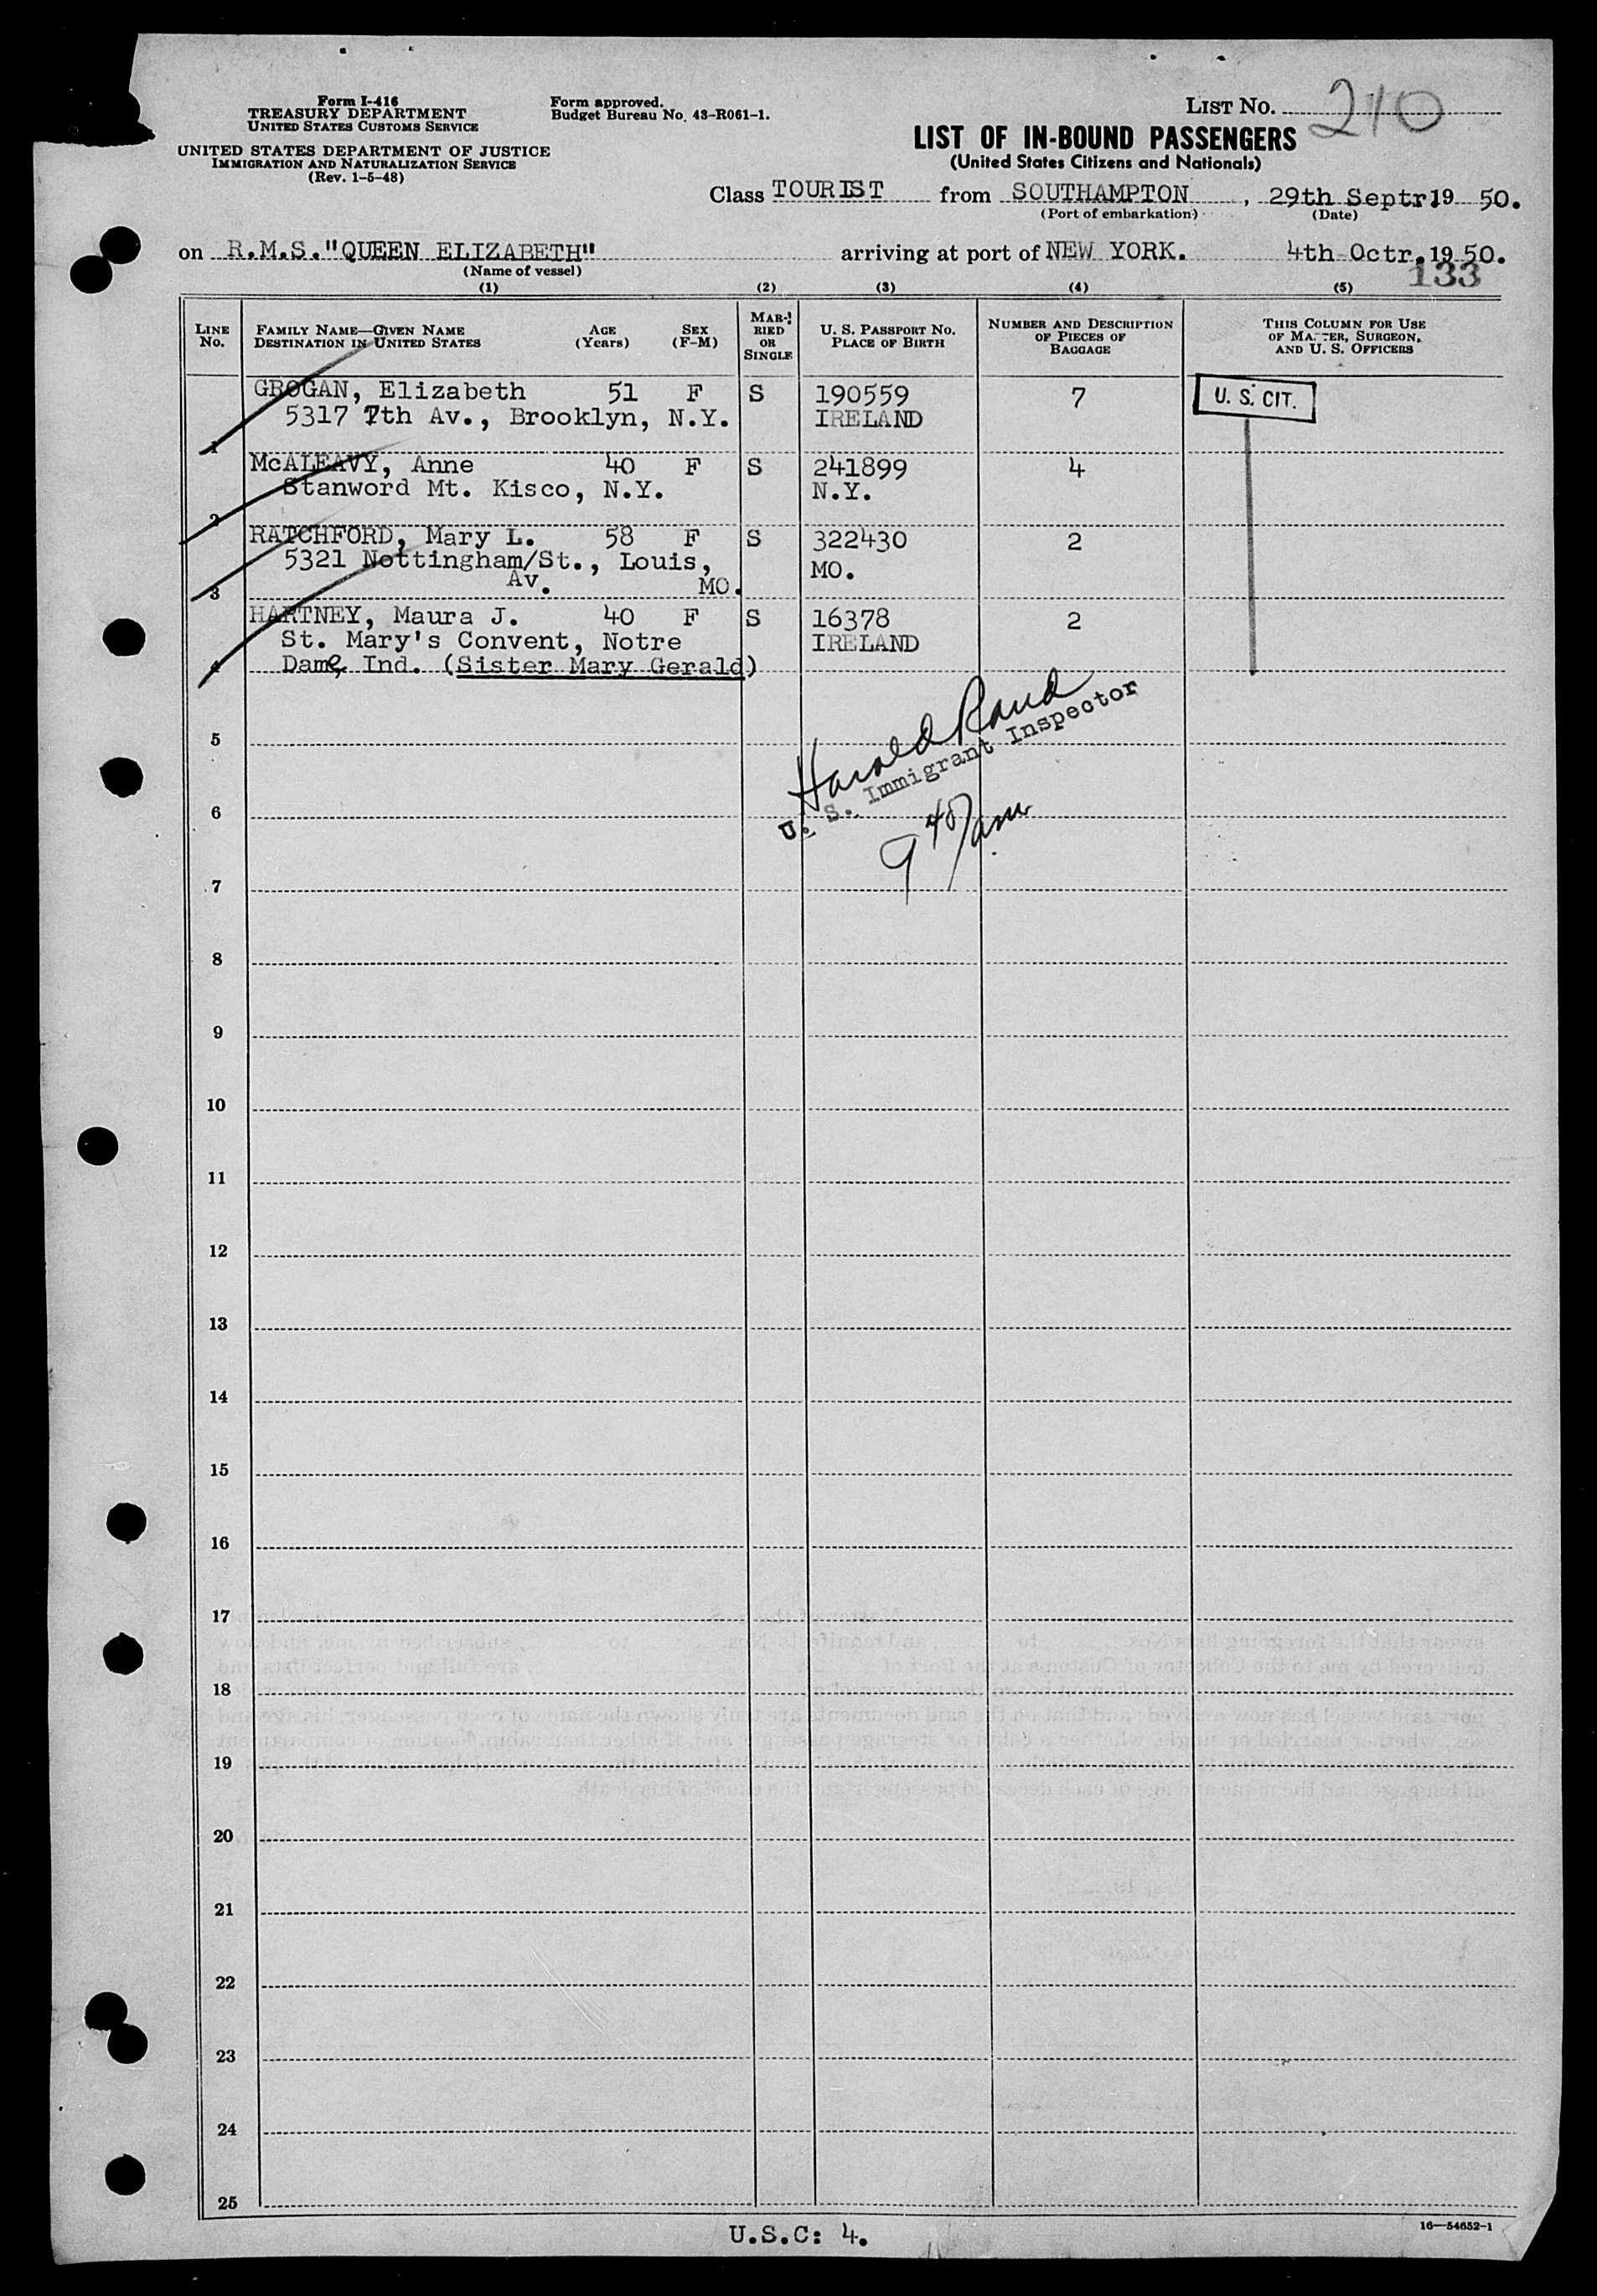 Form I-416
TREASURY DEPARTMENT
UNITED STATES CUSTOMS SERVICE
UNITED STATES DEPARTMENT OF JUSTICE
IMMIGRATION AND NATURALIZATION SERVICE
(Rev. 1-5-48)
Form approved.
Budget Bureau No. 43-R061-1.
LIST NO. 210
LIST OF IN-BOUND PASSENGERS
(United States Citizens and Nationals)
Class TOURIST from SOUTHAMPTON, 29th Septr. 19 50.
(Port of embarkation) (Date)
on R.M.S. "QUEEN ELIZABETH" arriving at port of NEW YORK. 4th Octr. 19 50.
(Name of vessel)
133
(1) (2) (3) (4) (5)
LINE No. FAMILY NAME—GIVEN NAME DESTINATION IN UNITED STATES AGE (Years) SEX (F-M) MARRIED OR SINGLE U. S. PASSPORT NO. PLACE OF BIRTH NUMBER AND DESCRIPTION OF PIECES OF BAGGAGE THIS COLUMN FOR USE OF MASTER, SURGEON, AND U. S. OFFICERS
GROGAN, Elizabeth 51 F S 190559 7 U. S. CIT.
5317 7th Av., Brooklyn, N.Y. IRELAND
1
McALEAVY, Anne 40 F S 241899 4
Stanword Mt. Kisco, N.Y. N.Y.
2
RATCHFORD, Mary L. 58 F S 322430 2
5321 Nottingham/St., Louis, MO.
3 Av. MO.
HARTNEY, Maura J. 40 F S 16378 2
St. Mary's Convent, Notre IRELAND
4 Dame, Ind. (Sister Mary Gerald)
Harold Rand
U. S. Immigrant Inspector
9 45/am
5
6
7
8
9
10
11
12
13
14
15
16
17
18
19
20
21
22
23
24
25
U.S.C: 4.
16—54652-1